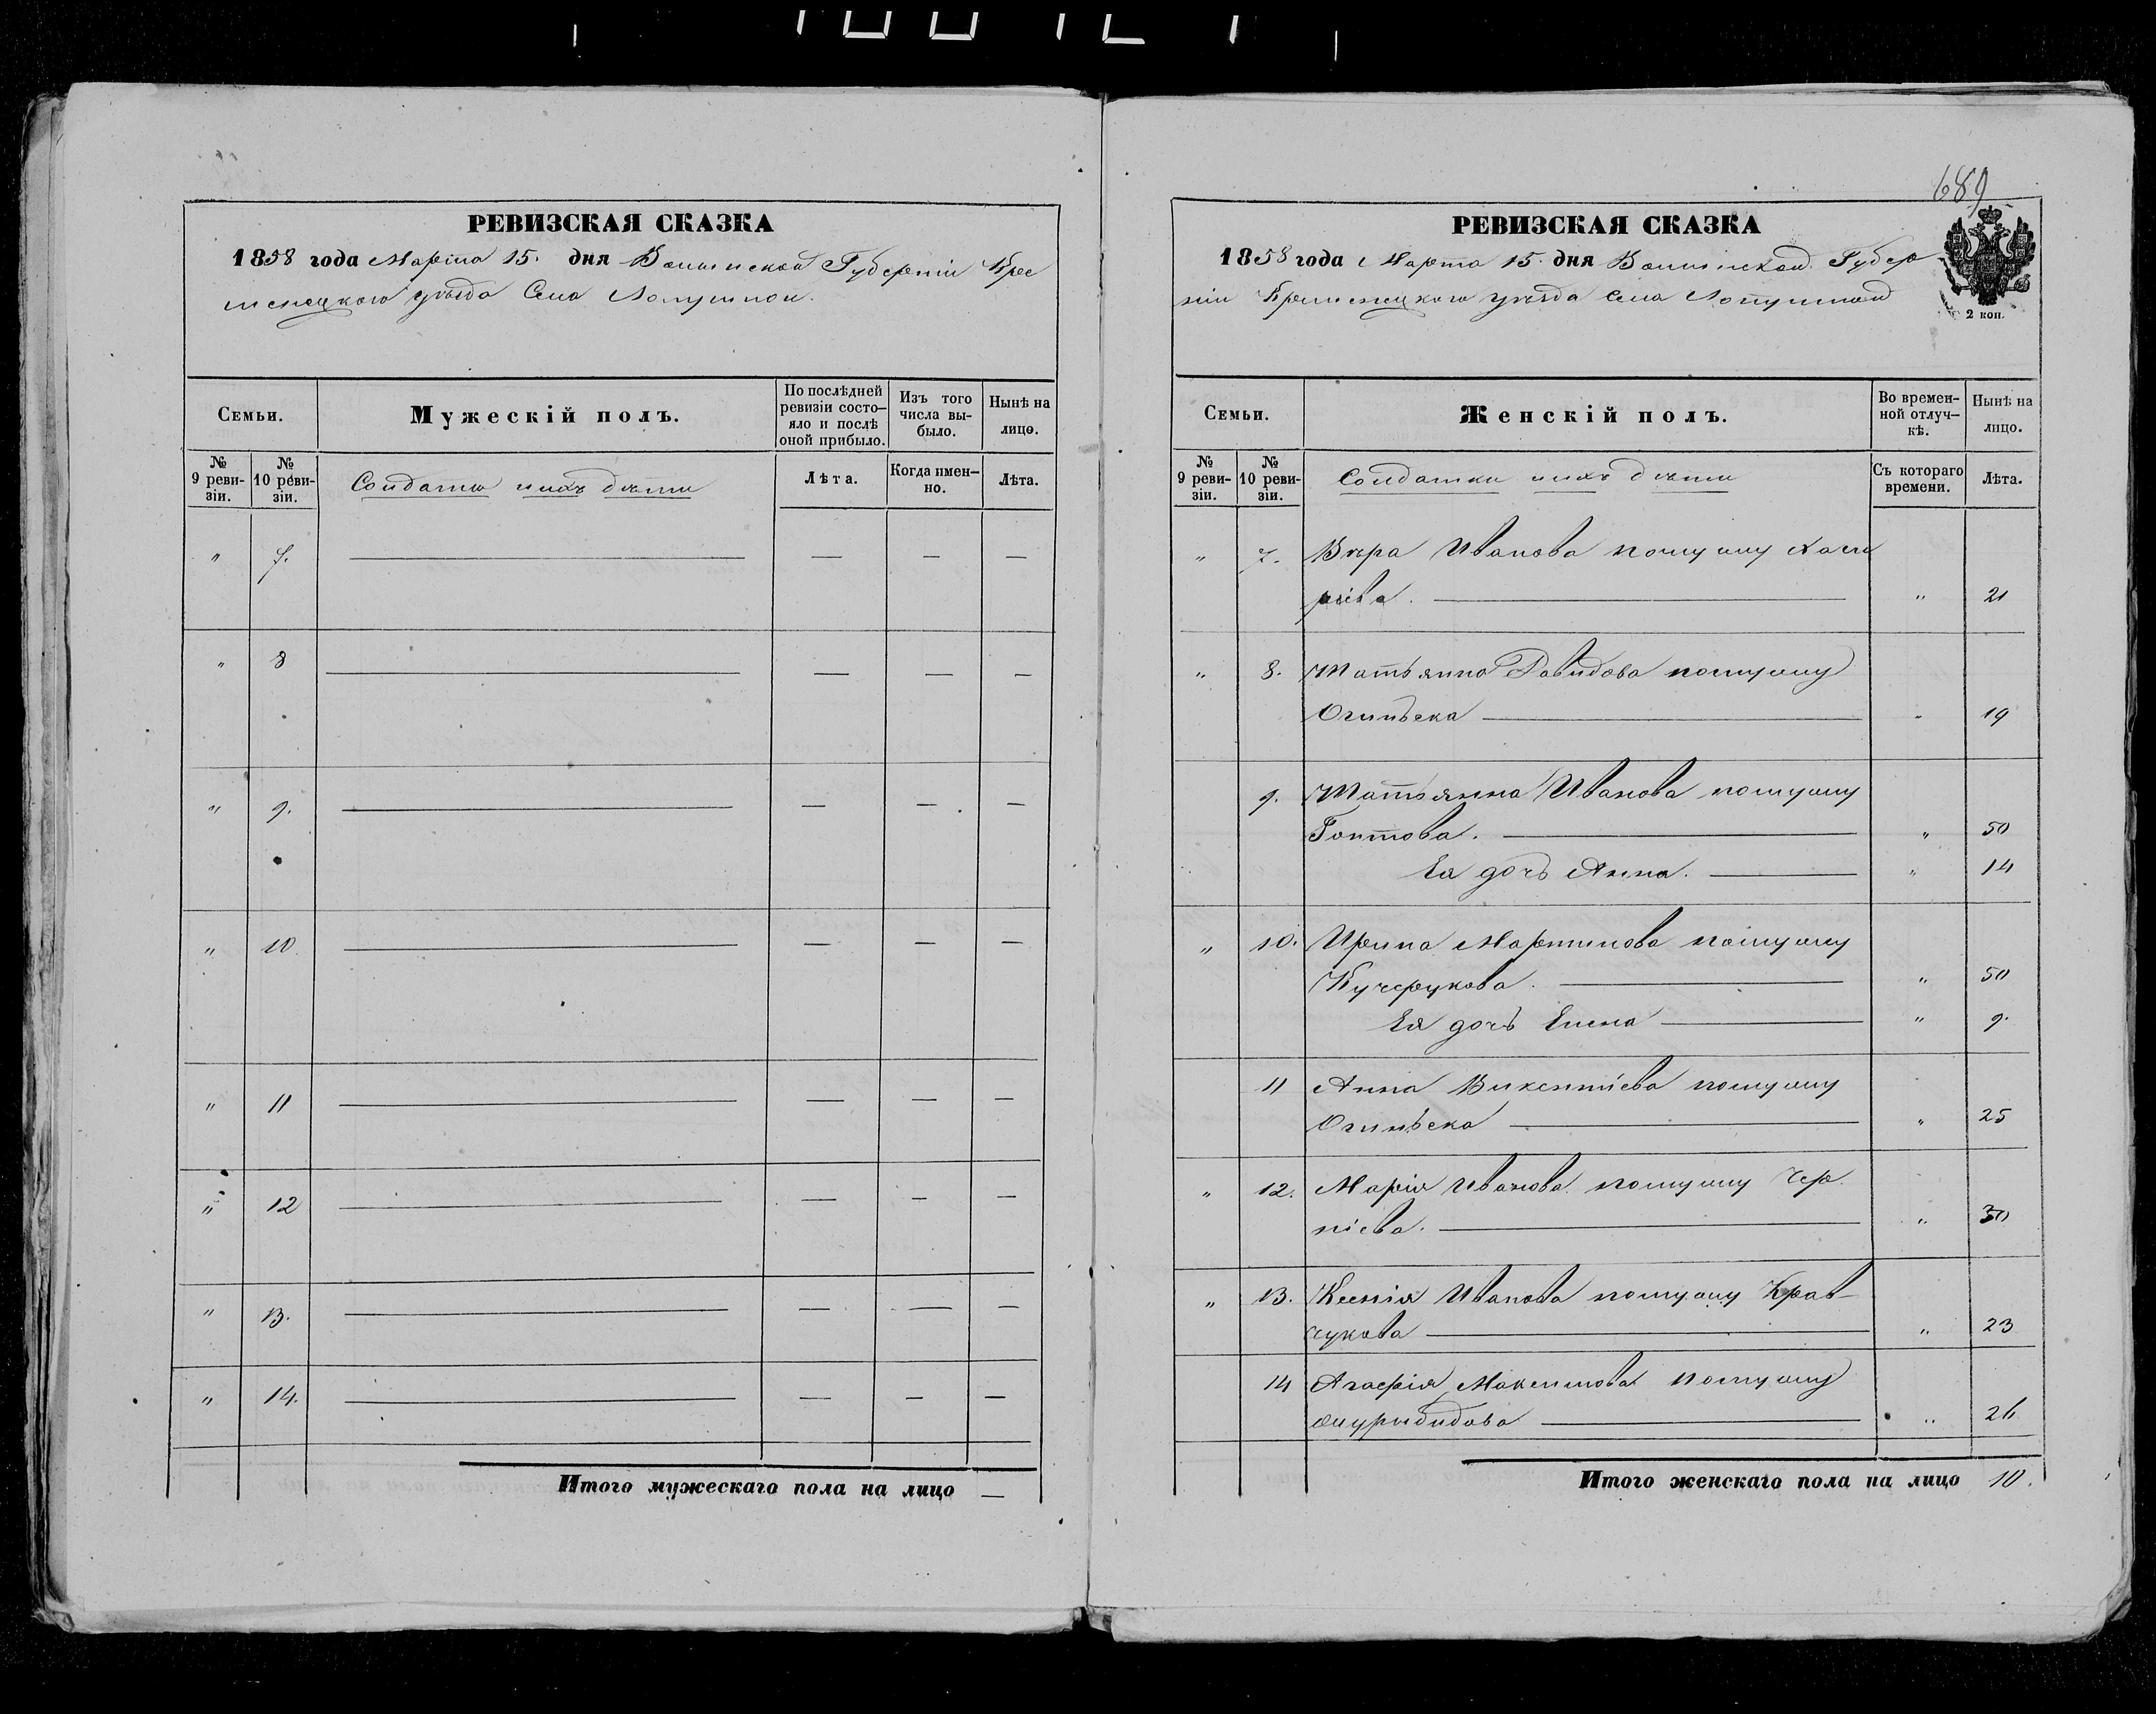 689
РЕВИЗСКАЯ СКАЗКА
1858 года Марта 15. дня Волынской Губерніи Кре
менецкого уѣзда Села Лопушной.
Семьи.
Мужескій полъ.
По послѣдней ревизіи состо-яло и послѣ оной прибыло.
Изъ того числа вы-было.
Нынѣ на лицо.
№ 9 реви-зіи.
№ 10 реви-зіи.
Солдаты и ихъ дѣти
Лѣта.
Когда имен-но.
Лѣта.
" 7. — — — —
" 8 — — — —
" 9. — — — —
" 10. — — — —
" 11 — — — —
" 12 — — — —
" 13. — — — —
" 14. — — — —
Итого мужескаго пола на лицо —
РЕВИЗСКАЯ СКАЗКА
1858 года Марта 15. дня Волынской Губер
ніи Кременецкого уѣзда Села Лопушной
2 коп.
Семьи.
Женскій полъ.
Во времен-ной отлуч-кѣ.
Нынѣ на лицо.
№ 9 реви-зіи.
№ 10 реви-зіи.
Солдатки и ихъ дѣти
Съ котораго времени.
Лѣта.
" 7. Вѣра Иванова помужу
" 21
" 8. Татьянна Давидова помужу
— " 19
9. Татьянна Иванова помужу
— " 50
Ея дочь Анна. — " 14
" 10. Ирина Мартинова помужу
Кучерукова. — " 50
Ея дочь Елена — " 9.
11 Анна Викентіева помужу
— " 25
" 12. Марія Иванова помужу Чер
ніева. — " 30
" 13. Ксенія Иванова помужу Крав-
чукова — " 23
14 Агафія Максимова помужу
— " 26
Итого женскаго пола на лицо 10.